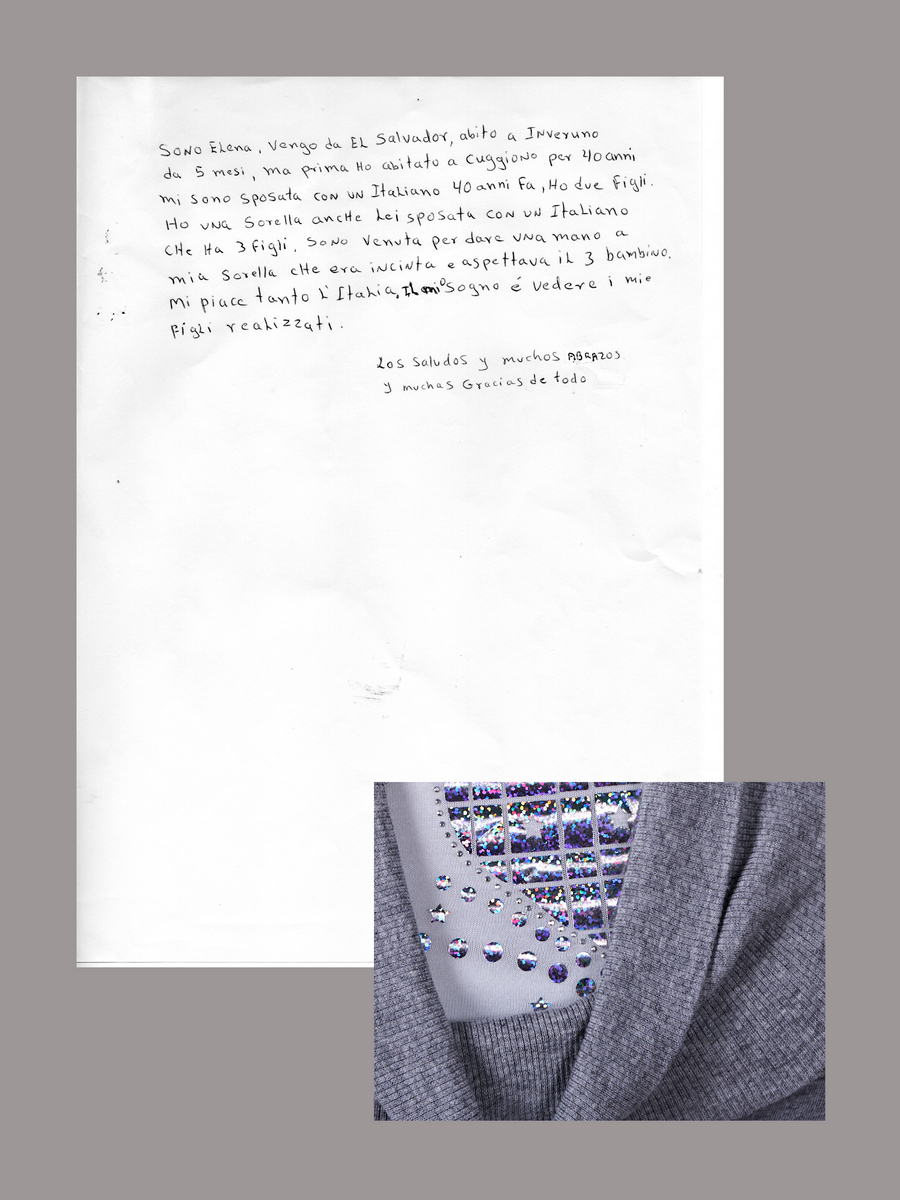 Sono Elena, Vengo da El Salvador, abito a Inveruno
da 5 mesi, ma prima Ho abitato a Cuggiono per 40 anni
mi sono sposata con un Italiano 40 anni Fa, Ho due Figli.
Ho una Sorella ancHe Lei sposata con un Italiano
cHe Ha 3 Figli. Sono Venuta per dare una mano a
mia Sorella cHe era incinta e aspettava il 3 bambino.
Mi piace tanto L'Italia, Il mio Sogno é Vedere i mie
Figli realizzati.
Los Saludos y muchos ABRAZOS
y muchas Gracias de todo